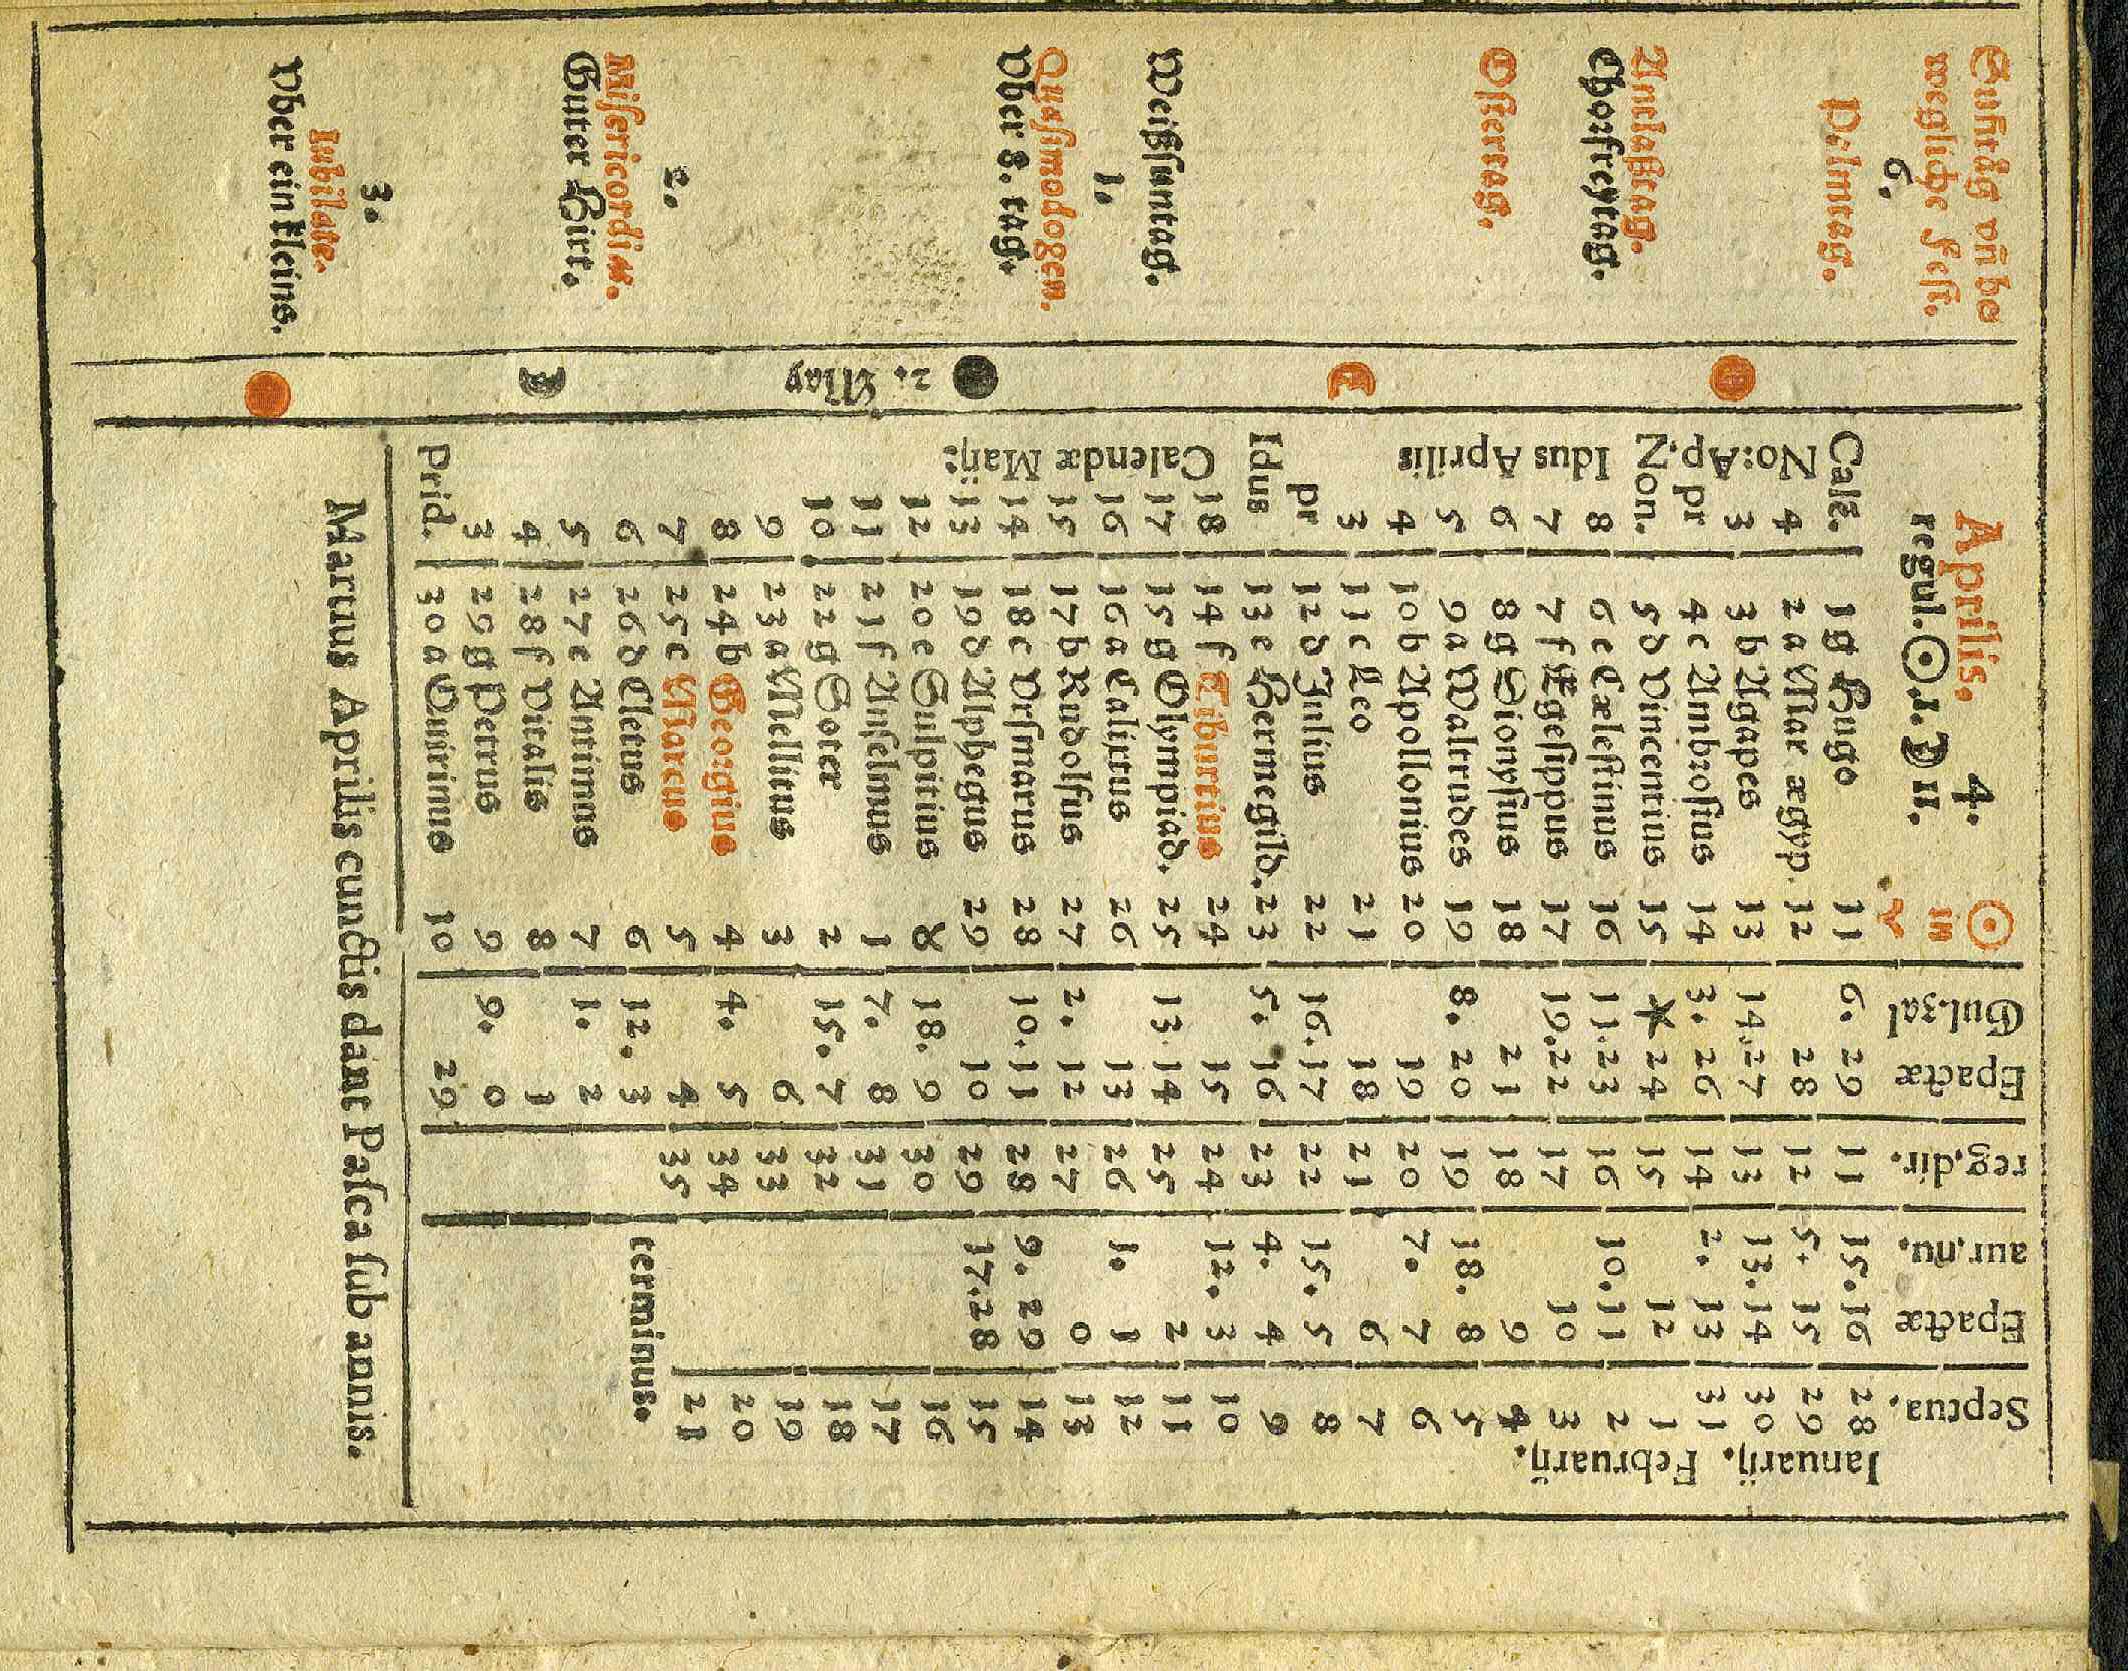 Suntåg vñ be
wegliche Fest.
6.
Palmtag.
Antlaßtag.
Chorfreytag.
Ostertag.
Weißsuntag.
1.
Quasimodogen.
Vber 8. tag.
2.
Misericordiæ.
Guter Hirt.
3.
Iubilate.
Vber ein kleins.
2. May
Aprilis. 4. ☉
regul. ☉. 1. ☽ 11. in ♈
Gul.zal Epactæ reg.dir. aur.nu. Epactæ Septua.
Ianuarij. Februarij.
No:Ap. Idus Aprilis Calendæ Maij:
Cale. 1 g Hugo 11 6. 29 11 15. 16 28
4 2 a Mar ægyp. 12 28 12 5. 15 29
3 3 b Agapes 13 14. 27 13 13. 14 30
pr 4 c Ambrosius 14 3. 26 14 2. 13 31
Non. 5 d Vincentius 15 * 24 15 12 1
8 6 e Cælestinus 16 11. 23 16 10. 11 2
7 7 f Egesippus 17 19. 22 17 10 3
6 8 g Dionysius 18 21 18 9 4
5 9 a Waltrudes 19 8. 20 19 18. 8 5
4 10 b Apollonius 20 19 20 7. 7 6
3 11 c Leo 21 18 21 6 7
pr 12 d Julius 22 16. 17 22 15. 5 8
Idus 13 e Hermegild. 23 5. 16 23 4. 4 9
18 14 f Tiburtius 24 15 24 12. 3 10
17 15 g Olympiad. 25 13. 14 25 2 11
16 16 a Calixtus 26 13 26 1. 1 12
15 17 b Rudolfus 27 2. 12 27 0 13
14 18 c Vrsmarus 28 10. 11 28 9. 29 14
13 19 d Alphegus 29 10 29 17. 28 15
12 20 e Sulpitius ♉ 18. 9 30 16
11 21 f Anselmus 1 7. 8 31 17
10 22 g Soter 2 15. 7 32 18
9 23 a Mellitus 3 6 33 19
8 24 b Georgius 4 4. 5 34 20
7 25 c Marcus 5 4 35 21
6 26 d Cletus 6 12. 3 terminus.
5 27 e Antimus 7 1. 2
4 28 f Vitalis 8 1
3 29 g Petrus 9 9. 0
Prid. 30 a Quirinus 10 29
Martius Aprilis cunctis dant Pasca sub annis.